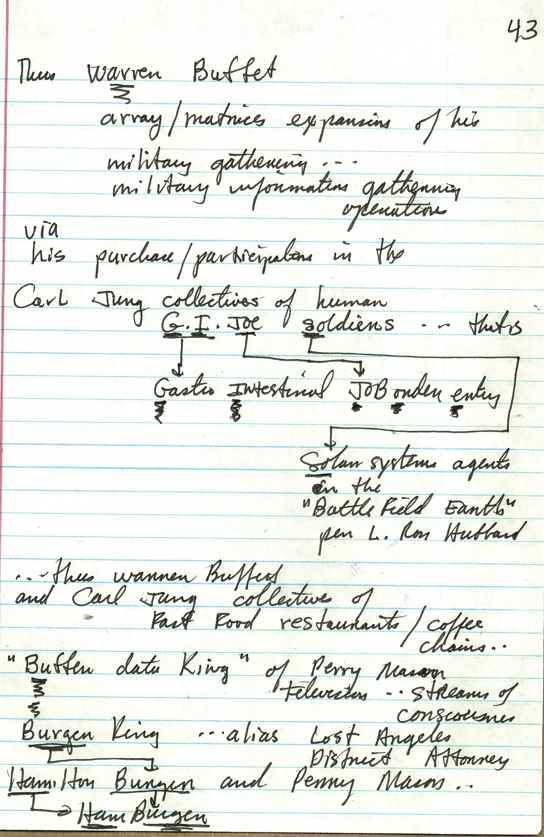 43
Thus Warren Buffet
array/matrices expansion of his
military gathering ...
military information gathering
operations
via
his purchase/participation in the
Carl Jung collectives of human
G.I. Joe soldiers ... that is
Gastro Intestinal JOB order entry
Solar systems agents
in the
"Battle Field Earth"
per L. Ron Hubbard
... thus Warren Buffet
and Carl Jung collective of
Fast Food restaurants/coffee
chains..
"Buffer data King" of Perry Mason
television .. streams of
consciousness
Burger King ...alias Lost Angeles
District Attorney
Hamilton Burger and Perry Mason..
Ham Burger